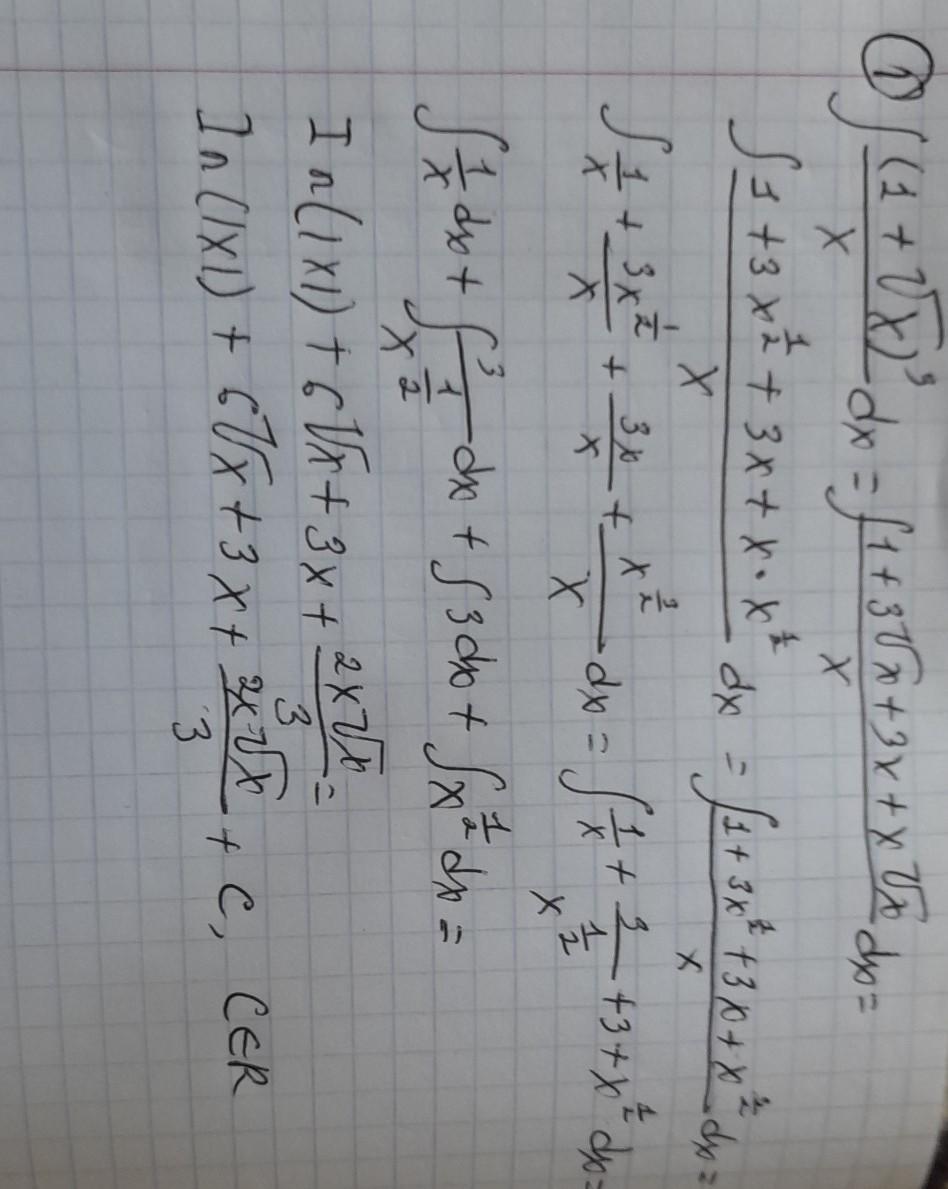 ① ∫ (1 + √x)³ / x dx = ∫ (1 + 3√x + 3x + x√x) / x dx =
∫ (1 + 3x^(1/2) + 3x + x · x^(1/2)) / x dx = ∫ (1 + 3x^(1/2) + 3x + x^(3/2)) / x dx =
∫ 1/x + 3x^(1/2) / x + 3x / x + x^(3/2) / x dx = ∫ 1/x + 3 / x^(1/2) + 3 + x^(1/2) dx =
∫ 1/x dx + ∫ 3 / x^(1/2) dx + ∫ 3 dx + ∫ x^(1/2) dx =
In(|x|) + 6√x + 3x + 2x√x / 3 =
In(|x|) + 6√x + 3x + 2x√x / 3 + C, C∈R